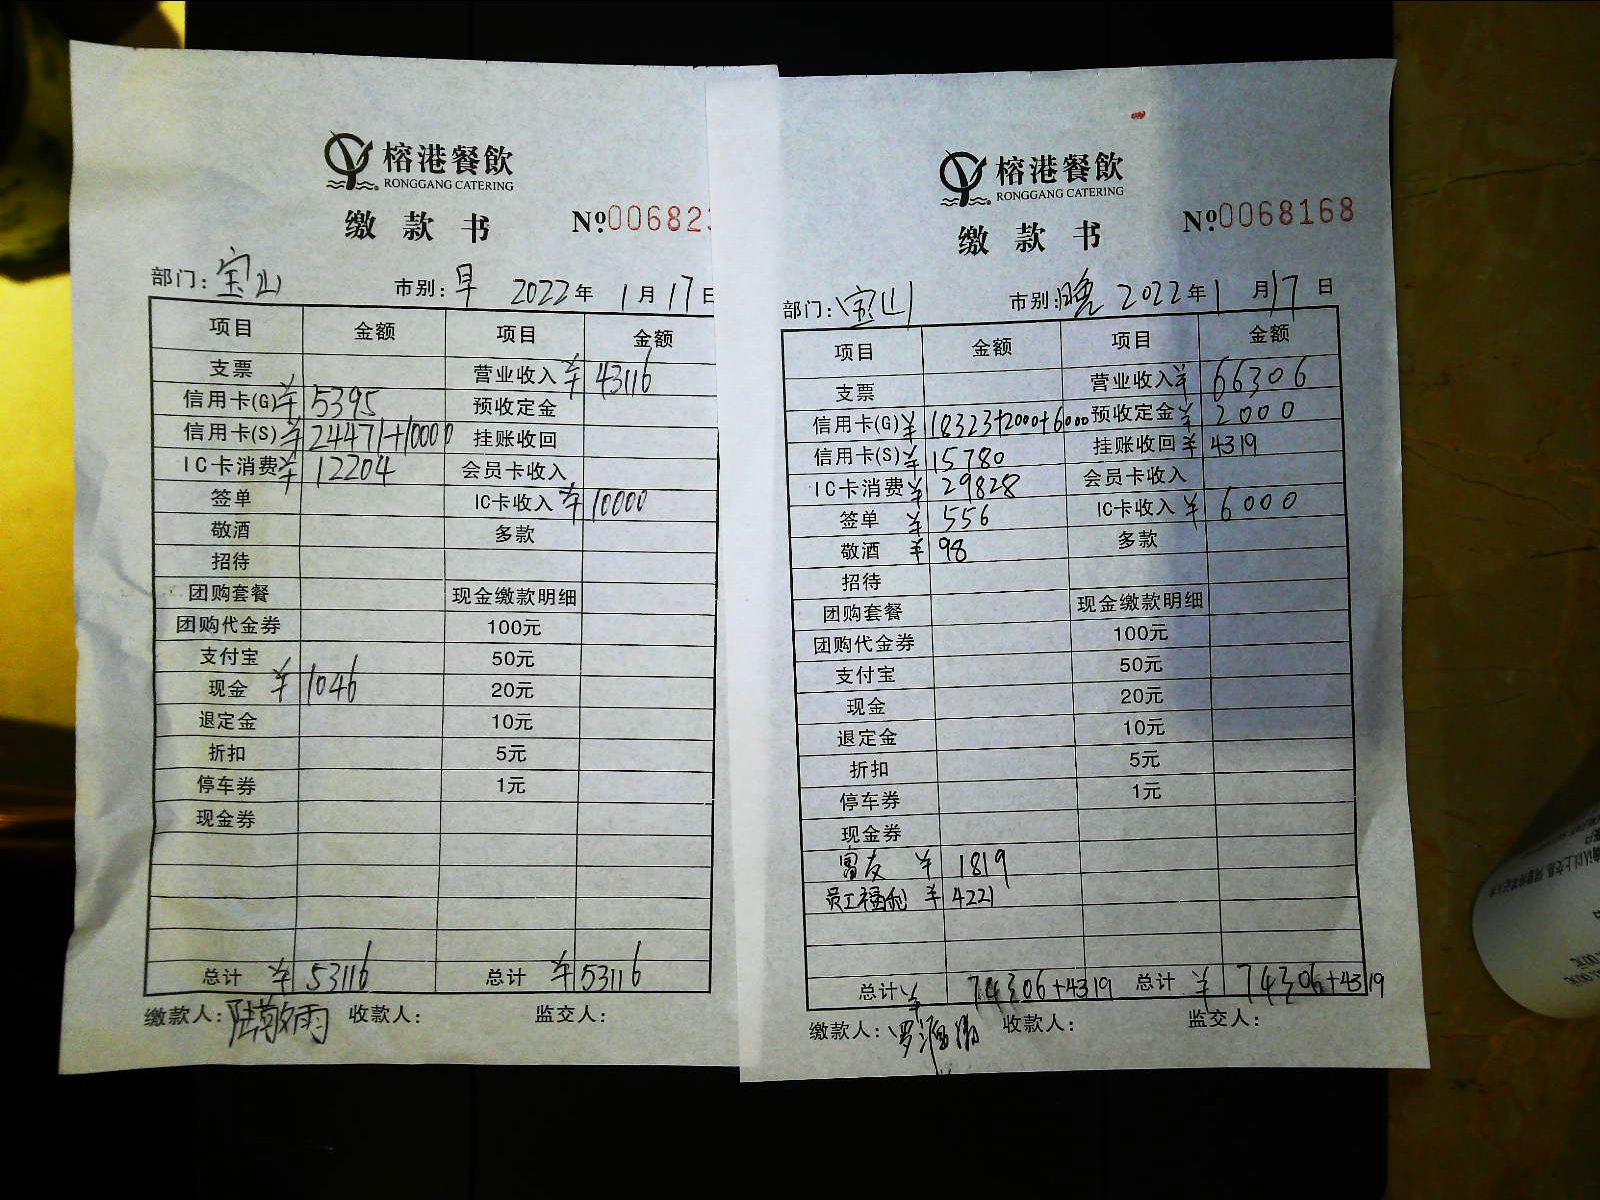 榕港餐飲
RONGGANG CATERING
缴款书 №006823
部门: 宝山 市别: 早 2022年 1月17日
项目 金额 项目 金额
支票 营业收入 ¥43116
信用卡(G) ¥5395 预收定金
信用卡(S) ¥24471+10000 挂账收回
IC卡消费 ¥12204 会员卡收入
签单 IC卡收入 ¥10000
敬酒 多款
招待
团购套餐 现金缴款明细
团购代金券 100元
支付宝 50元
现金 ¥1046 20元
退定金 10元
折扣 5元
停车券 1元
现金券
总计 ¥53116 总计 ¥53116
缴款人: 陆敏雨 收款人: 监交人:
榕港餐飲
RONGGANG CATERING
缴款书 №0068168
部门: 宝山 市别: 晚 2022年 1月17日
项目 金额 项目 金额
支票 营业收入 ¥66306
信用卡(G) ¥18323+2000+6000 预收定金 ¥2000
信用卡(S) ¥15780 挂账收回 ¥4319
IC卡消费 ¥29828 会员卡收入
签单 ¥556 IC卡收入 ¥6000
敬酒 ¥98 多款
招待
团购套餐 现金缴款明细
团购代金券 100元
支付宝 50元
现金 20元
退定金 10元
折扣 5元
停车券 1元
现金券
富友 ¥1819
员工福利 ¥4221
总计 ¥74306+4319 总计 ¥74306+4319
缴款人: 罗 收款人: 监交人: